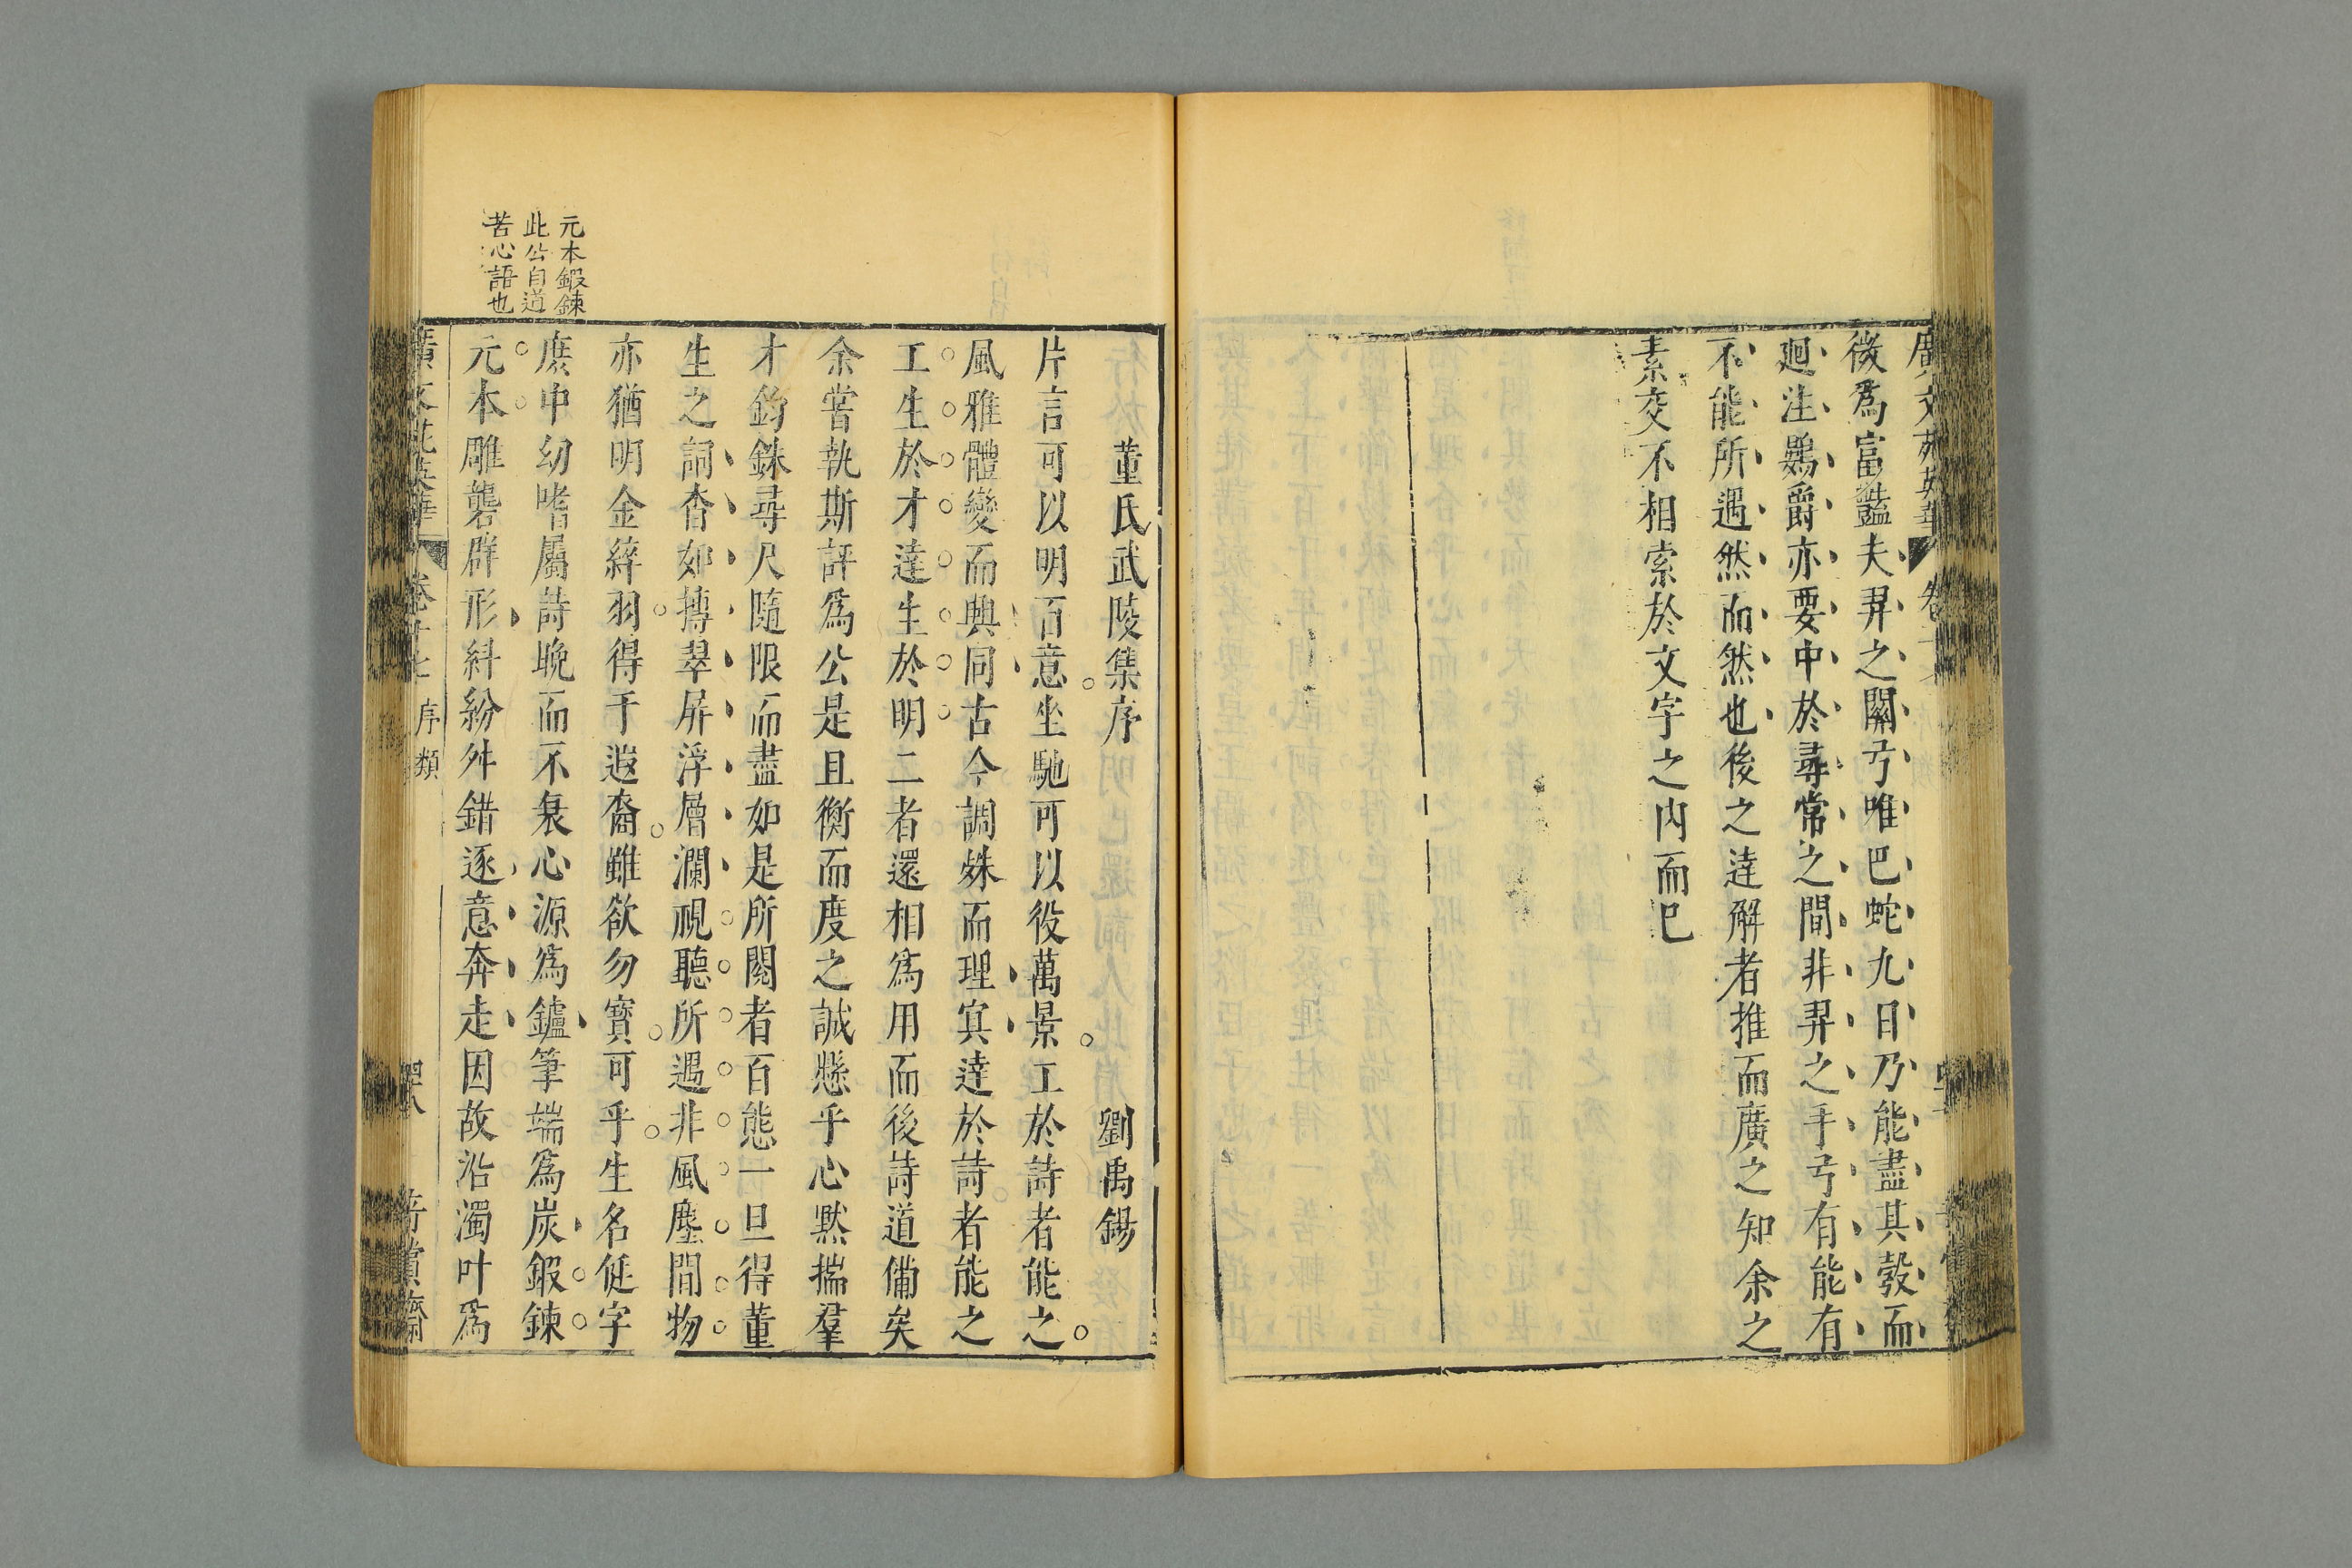 微爲富豔夫羿之關弓唯巴蛇九日乃能盡其彀而
廻注鷃爵亦要中於尋常之間非羿之手弓有能有
不能所遇然而然也後之達解者推而廣之知余之
素交不相索於文字之内而巳
董氏武陵集序 劉禹錫
片言可以明百意坐馳可以役萬景工於詩者能之
風雅體變而興同古今調殊而理寘達於詩者能之
工生於才達生於明二者還相爲用而後詩道備矣
余嘗執斯評爲公是且衡而度之誠懸乎心默揣羣
才鈞銖尋尺隨限而盡如是所閱者百態一旦得董
生之詞杳如搏翠屏浮層瀾視聽所遇非風塵間物
亦猶明金綷羽得于遐裔雖欲勿寶可乎生名侹字
庶中幼嗜屬詩晚而不衰心源爲鑪筆端爲炭鍜鍊
元本雕礱群形糾紛舛錯逐意奔走因故沿濁叶爲
元本鍜鍊
此公自道
苦心語也
廣文苑英華 卷十七 序類